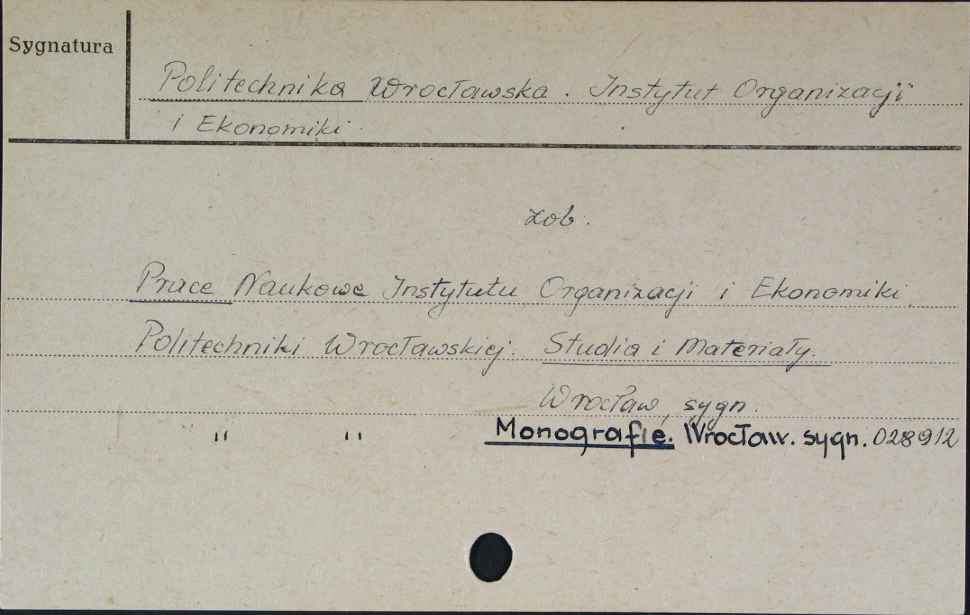 Sygnatura
Politechnika Wrocławska. Instytut Organizacji
i Ekonomiki.
zob.
Prace Naukowe Instytutu Organizacji i Ekonomiki
Politechniki Wrocławskiej. Studia i Materiały.
Wrocław, sygn.
" " Monografie. Wrocław. sygn. 028912